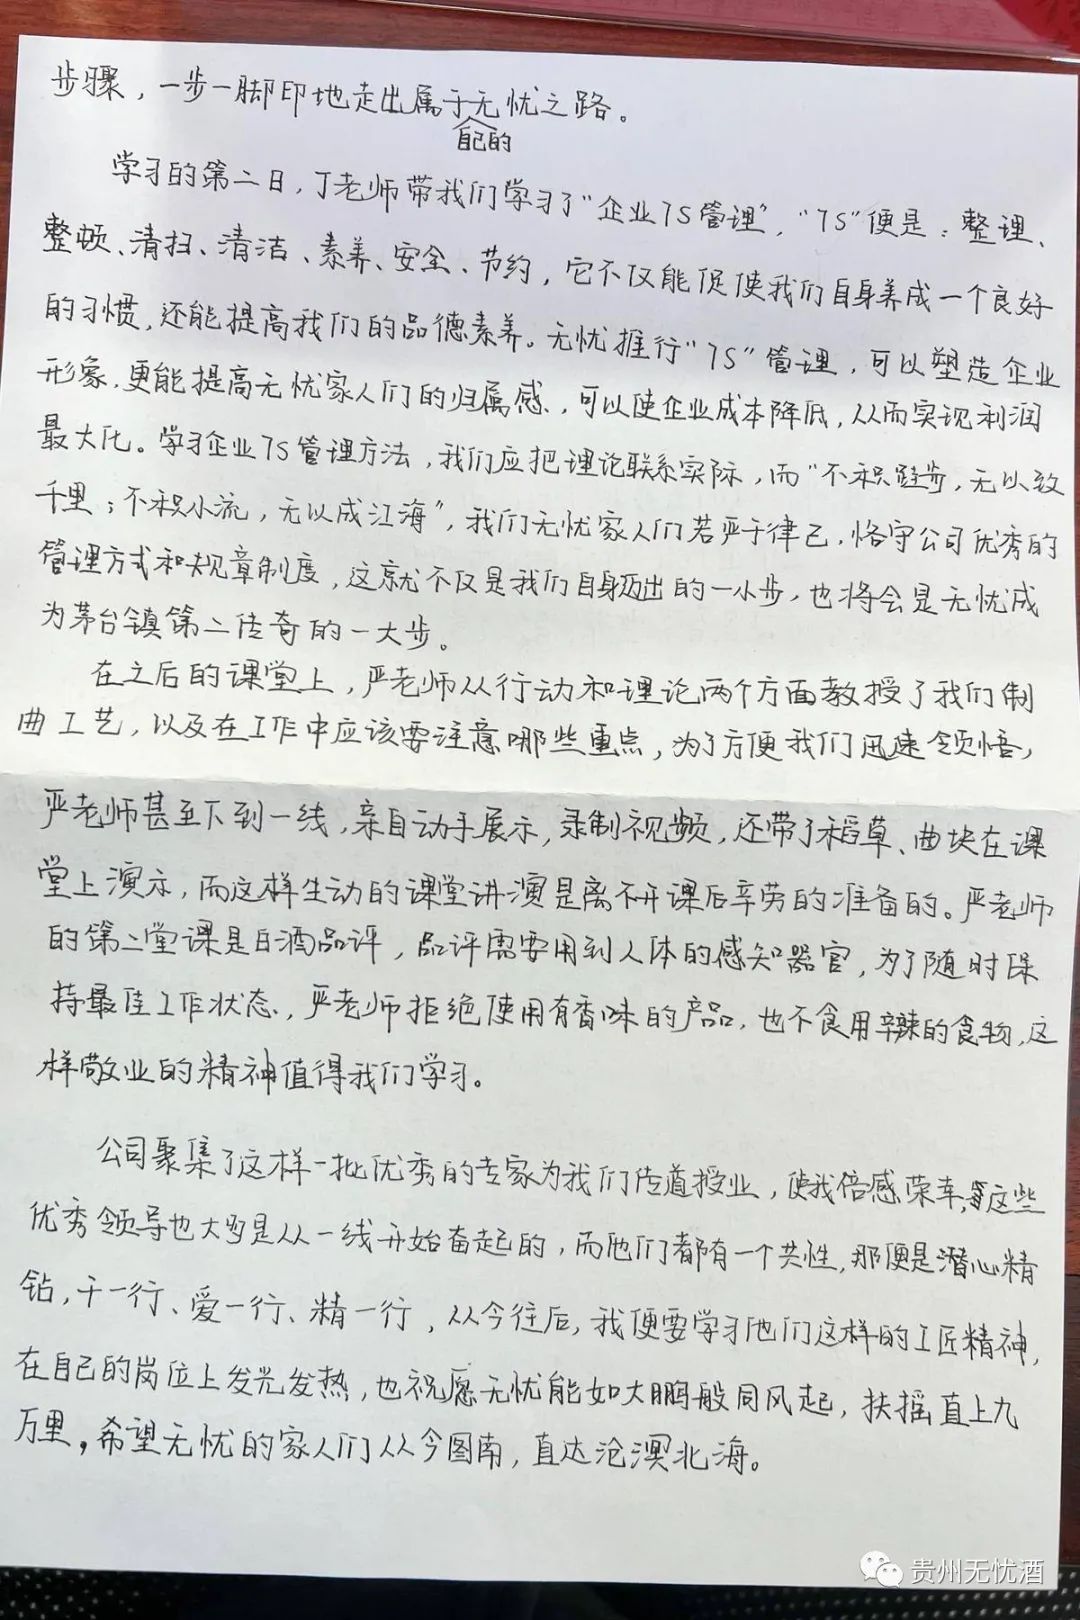 步骤，一步一脚印地走出属于无忧之路。
自己的
学习的第二日，丁老师带我们学习了“企业7S管理”，“7S”便是：整理、
整顿、清扫、清洁、素养、安全、节约，它不仅能促使我们自身养成一个良好
的习惯，还能提高我们的品德素养。无忧推行“7S”管理，可以塑造企业
形象，更能提高无忧家人们的归属感，可以使企业成本降低，从而实现利润
最大化。学习企业7S管理方法，我们应把理论联系实际，而“不积跬步，无以致
千里；不积小流，无以成江海”，我们无忧家人们若严于律己，恪守公司优秀的
管理方式和规章制度，这就不仅是我们自身迈出的一小步，也将会是无忧成
为茅台镇第二传奇的一大步。
在之后的课堂上，严老师从行动和理论两个方面教授了我们制
曲工艺，以及在工作中应该要注意哪些重点，为了方便我们迅速领悟，
严老师甚至下到一线，亲自动手展示，录制视频，还带了稻草、曲块在课
堂上演示，而这样生动的课堂讲演是离不开课后辛劳的准备的。严老师
的第二堂课是白酒品评，品评需要用到人体的感知器官，为了随时保
持最佳工作状态，严老师拒绝使用有香味的产品，也不食用辛辣的食物，这
样敬业的精神值得我们学习。
公司聚集了这样一批优秀的专家为我们传道授业，使我倍感荣幸，这些
优秀领导也大多是从一线开始奋起的，而他们都有一个共性，那便是潜心精
钻，干一行、爱一行、精一行，从今往后，我便要学习他们这样的工匠精神，
在自己的岗位上发光发热，也祝愿无忧能如大鹏般同风起，扶摇直上九
万里。希望无忧的家人们从今图南，直达沧溟北海。
贵州无忧酒